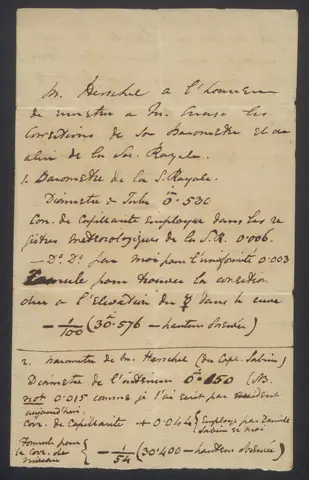 M. Herschel a l'honneur
de remettre a M. les
Corrections de son Barometre et de
celui de la Soc. Royale.
1. Barometre de la S. Royale.
Diametre du Tube 0.in530
Cor. de Capillarité employée dans les re
gistres meteorologiques de la S.R. 0.006.
— Do. Do. par moi pour l'uniformité 0.003
Formule pour trouver la correction
due a l'Elevation du ☿ dans la cuve
— 1/100 (30.in576 — hauteur observée)
2. Barometre de M. Herschel (du Capt. Sabine)
Diametre de l'interieur 0.in150 (NB.
not 0.015 comme je l'ai ecrit par accident
aujourd'hui.
Corr. de Capillarité + 0.044 { Employé par Daniell
Sabine et moi
Formule pour
la corr. de
niveau } — 1/54 (30.400 — hauteur observée)